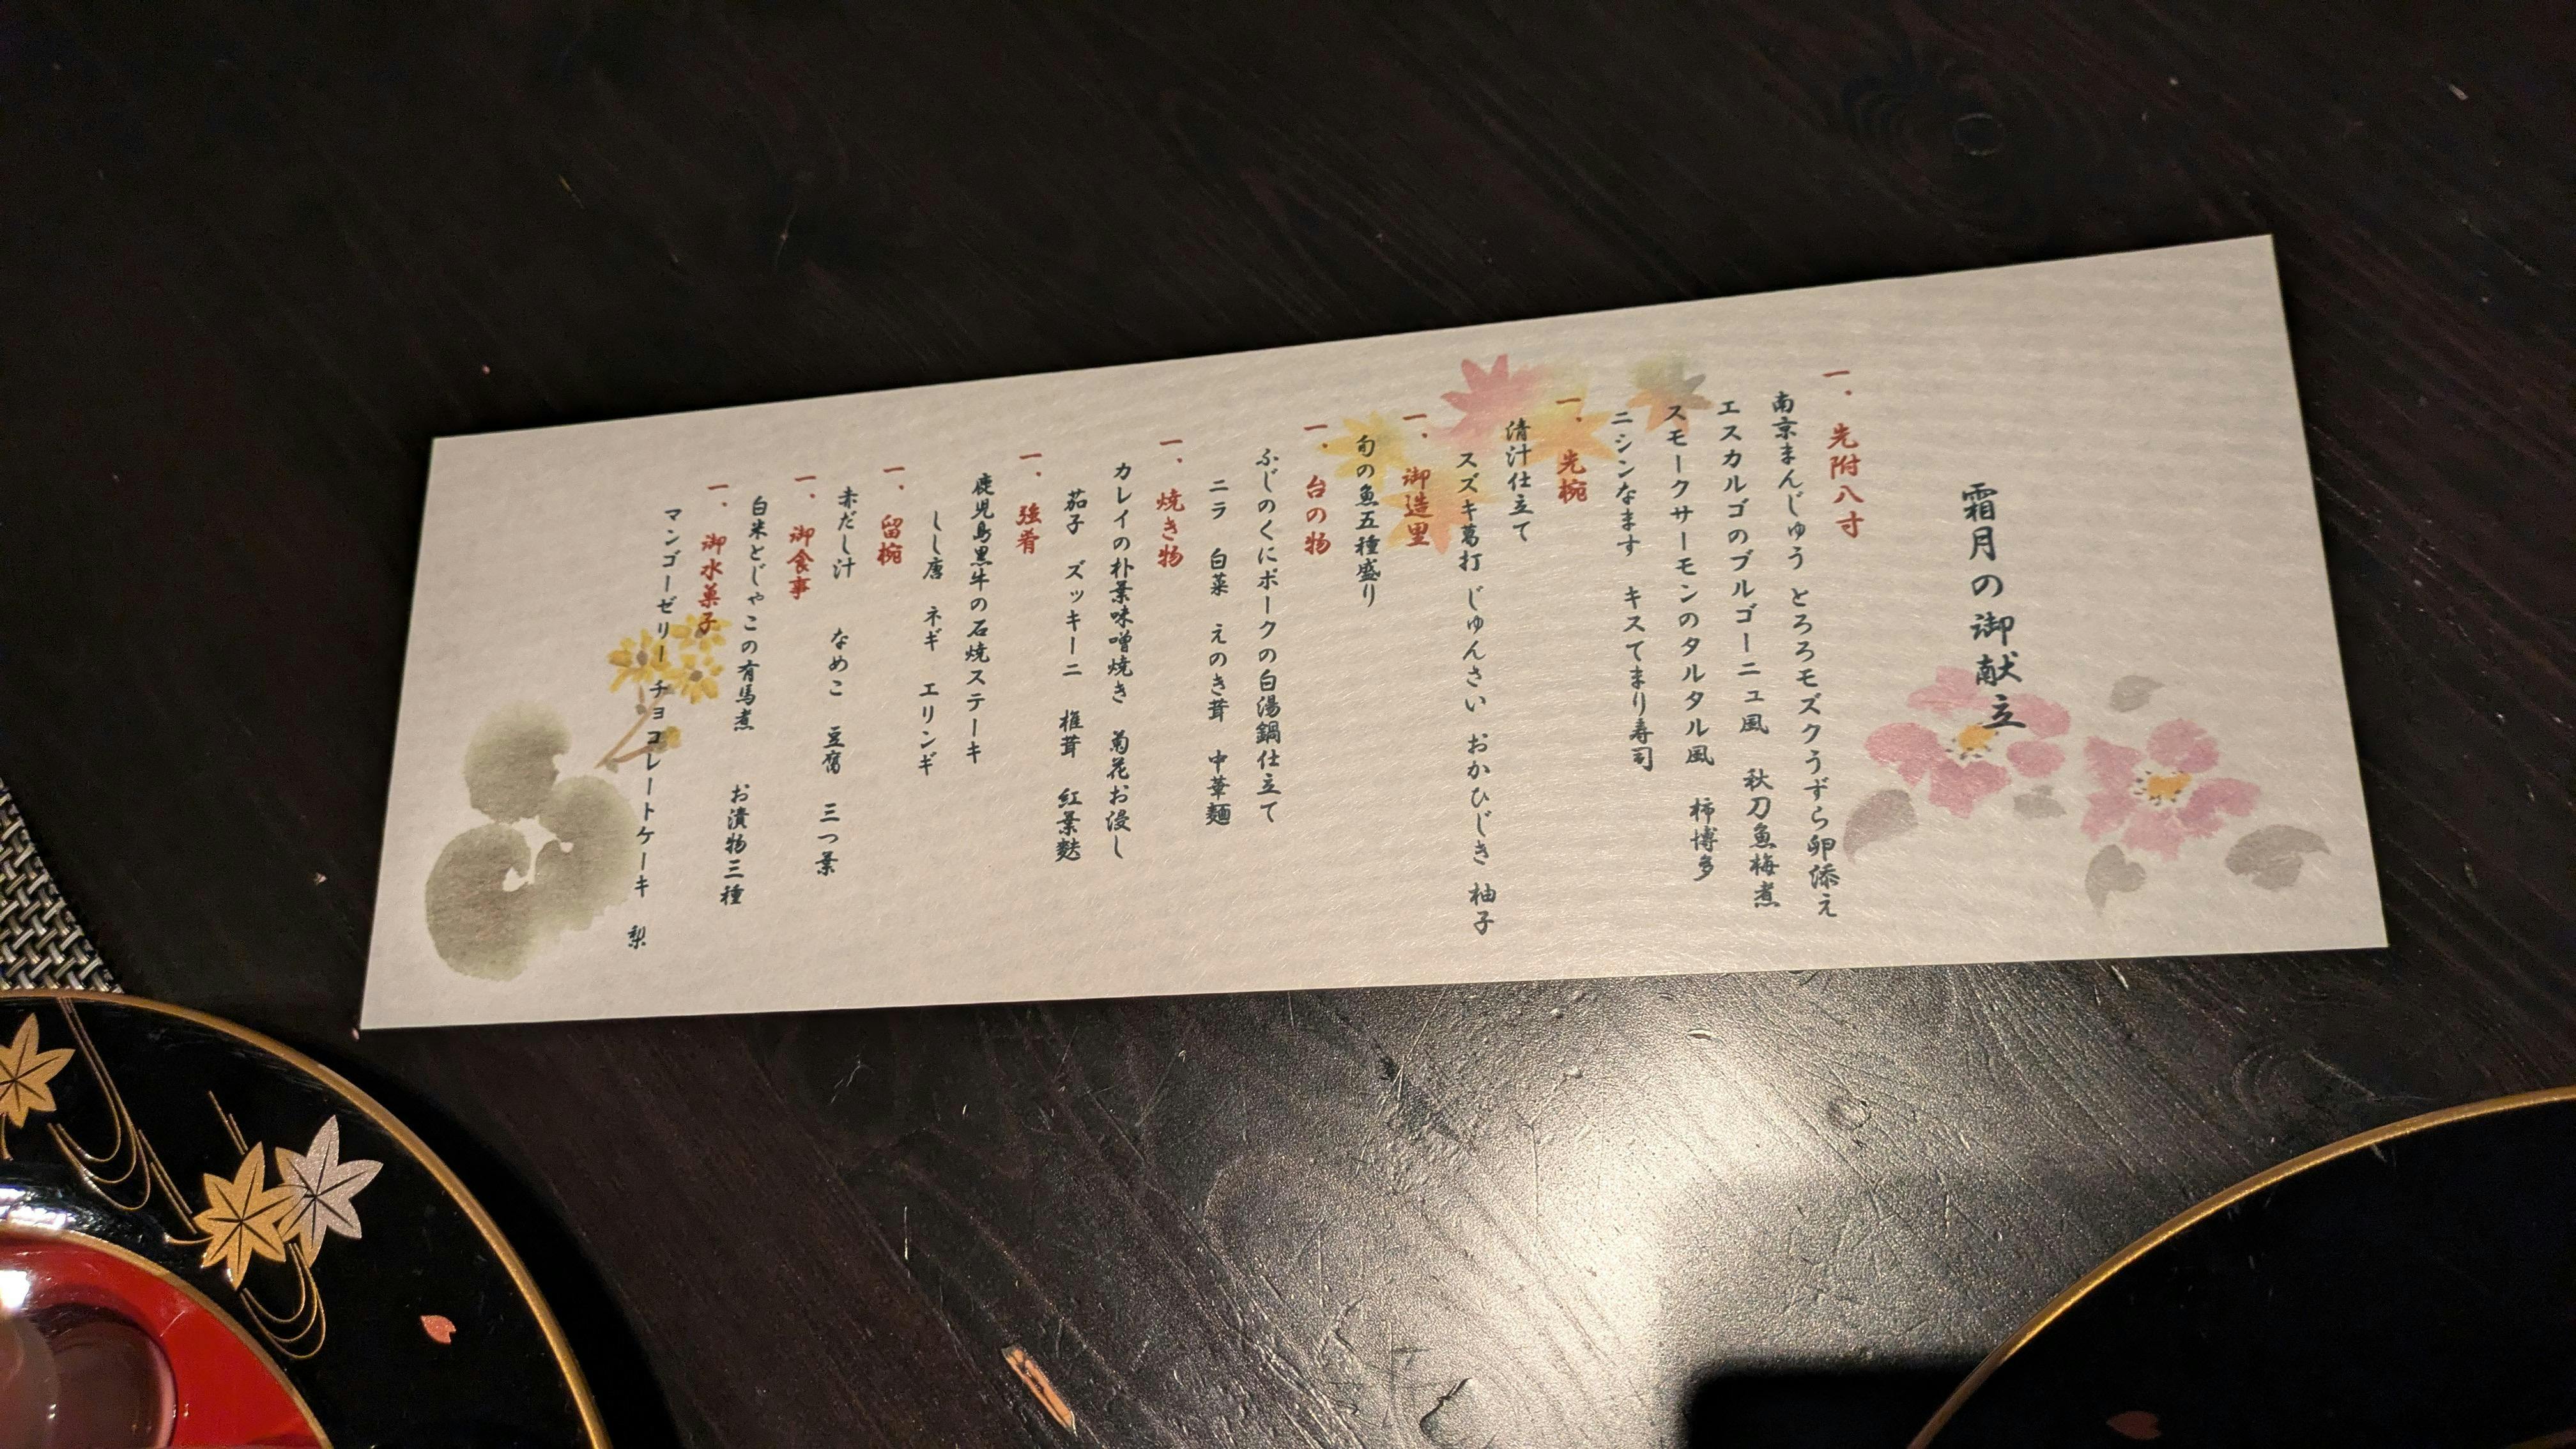 霜月の御献立
一、先附八寸
南京まんじゅう とろろモズクうずら卵添え
エスカルゴのブルゴーニュ風 秋刀魚梅煮
スモークサーモンのタルタル風 柿博多
ニシンなます キスてまり寿司
一、先椀
清汁仕立て
スズキ葛打 じゅんさい おかひじき 柚子
一、御造里
旬の魚五種盛り
一、台の物
ふじのくにポークの白湯鍋仕立て
ニラ 白菜 えのき茸 中華麺
一、焼き物
カレイの朴葉味噌焼き 菊花お浸し
茄子 ズッキーニ 椎茸 紅葉麩
一、強肴
鹿児島黒牛の石焼ステーキ
しし唐 ネギ エリンギ
一、留椀
赤だし汁 なめこ 豆腐 三つ葉
一、御食事
白米とじゃこの有馬煮 お漬物三種
一、御水菓子
マンゴーゼリー チョコレートケーキ 梨